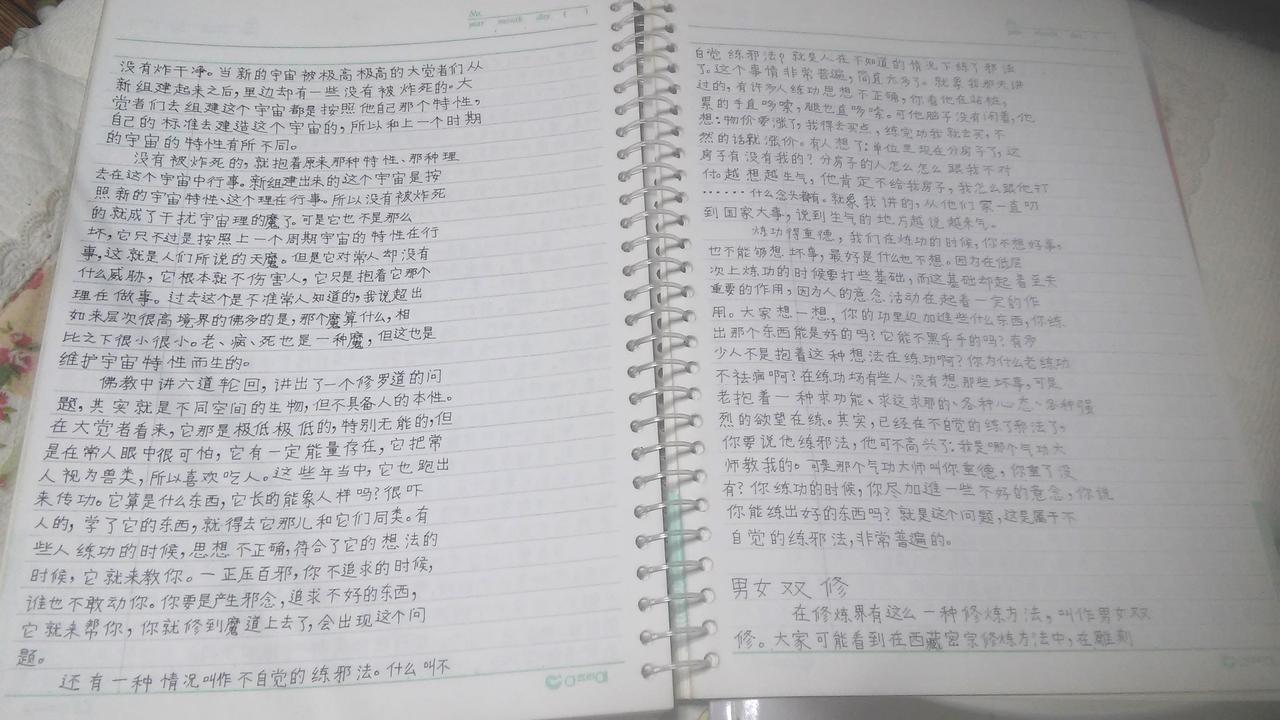 No.
year month day ( )
没有炸干净。当新的宇宙被极高极高的大觉者们从
新组建起来之后,里边却有一些没有被炸死的。大
觉者们去组建这个宇宙都是按照他自己那个特性,
自己的标准去建造这个宇宙的,所以和上一个时期
的宇宙的特性有所不同。
没有被炸死的,就抱着原来那种特性、那种理
去在这个宇宙中行事。新组建出来的这个宇宙是按
照新的宇宙特性、这个理在行事。所以没有被炸死
的就成了干扰宇宙理的魔了。可是它也不是那么
坏,它只不过是按照上一个周期宇宙的特性在行
事,这就是人们所说的天魔。但是它对常人却没有
什么威胁,它根本就不伤害人,它只是抱着它那个
理在做事。过去这个是不准常人知道的,我说超出
如来层次很高境界的佛多的是,那个魔算什么,相
比之下很小很小。老、病、死也是一种魔,但这也是
维护宇宙特性而生的。
佛教中讲六道轮回,讲出了一个修罗道的问
题,其实就是不同空间的生物,但不具备人的本性。
在大觉者看来,它那是极低极低的,特别无能的,但
是在常人眼中很可怕,它有一定能量存在,它把常
人视为兽类,所以喜欢吃人。这些年当中,它也跑出
来传功。它算是什么东西,它长的能象人样吗?很吓
人的,学了它的东西,就得去它那儿和它们同类。有
些人练功的时候,思想不正确,符合了它的想法的
时候,它就来教你。一正压百邪,你不追求的时候,
谁也不敢动你。你要是产生邪念,追求不好的东西,
它就来帮你,你就修到魔道上去了,会出现这个问
题。
还有一种情况叫作不自觉的练邪法。什么叫不
自觉练邪法?就是人在不知道的情况下练了邪法
了。这个事情非常普遍,简直太多了。就象我那天讲
过的,有许多人练功思想不正确,你看他在站桩,
累的手直哆嗦,腿也直哆嗦。可他脑子没有闲着,他
想:物价要涨了,我得去买点,练完功我就去买,不
然的话就涨价。有人想了:单位里现在分房子了,这
房子有没有我的?分房子的人怎么怎么跟我不对
付。越想越生气,他肯定不给我房子,我怎么跟他打
……什么念头都有。就象我讲的,从他们家一直叨
到国家大事,说到生气的地方越说越来气。
炼功得重德,我们在炼功的时候,你不想好事,
也不能够想坏事,最好是什么也不想。因为在低层
次上炼功的时候要打些基础,而这基础却起着至关
重要的作用,因为人的意念活动在起着一定的作
用。大家想一想,你的功里边加進些什么东西,你练
出那个东西能是好的吗?它能不黑乎乎的吗?有多
少人不是抱着这种想法在练功啊?你为什么老练功
不祛病啊?在练功场有些人没有想那些坏事,可是
老抱着一种求功能、求这求那的、各种心态、各种强
烈的欲望在练。其实,已经在不自觉的练了邪法了。
你要说他练邪法,他可不高兴了:我是哪个气功大
师教我的。可是那个气功大师叫你重德,你重了没
有?你练功的时候,你尽加進一些不好的意念,你说
你能练出好的东西吗?就是这个问题,这是属于不
自觉的练邪法,非常普遍的。
男女双修
在修炼界有这么一种修炼方法,叫作男女双
修。大家可能看到在西藏密宗修炼方法中,在雕刻